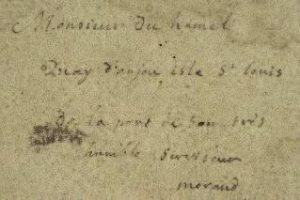 Monsieur Du hamel
Quay d'anjou isle St Louis
de la part de son très
humble serviteur
morand